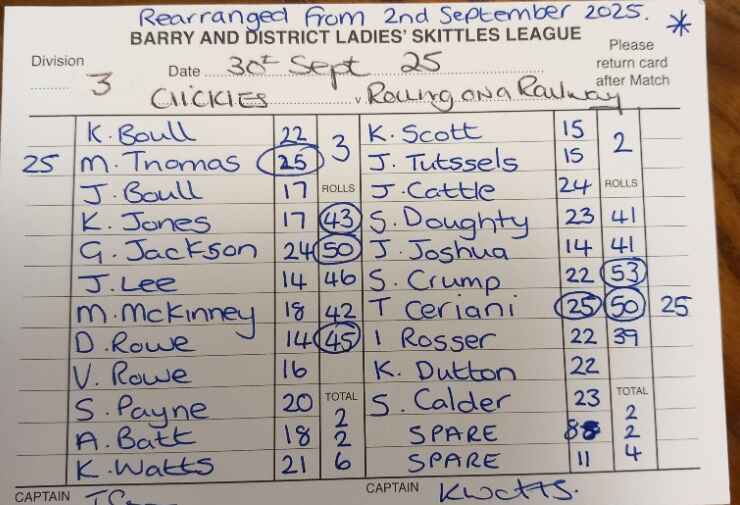 Rearranged from 2nd September 2025. *
BARRY AND DISTRICT LADIES' SKITTLES LEAGUE
Please
return card
after Match
Division 3 Date 30t Sept 25
Chickies v Rolling on a Railway
K. Boull 22 3 K. Scott 15 2
25 M. Thomas 25 J. Tutssels 15
J. Boull 17 ROLLS J. Cattle 24 ROLLS
K. Jones 17 43 S. Doughty 23 41
G. Jackson 24 50 J. Joshua 14 41
J. Lee 14 46 S. Crump 22 53
M. McKinney 18 42 T Ceriani 25 50 25
D. Rowe 14 45 I Rosser 22 39
V. Rowe 16 K. Dutton 22
S. Payne 20 TOTAL 2 S. Calder 23 TOTAL 2
A. Batt 18 2 SPARE 2
K. Watts 21 6 SPARE 11 4
CAPTAIN CAPTAIN K Watts.